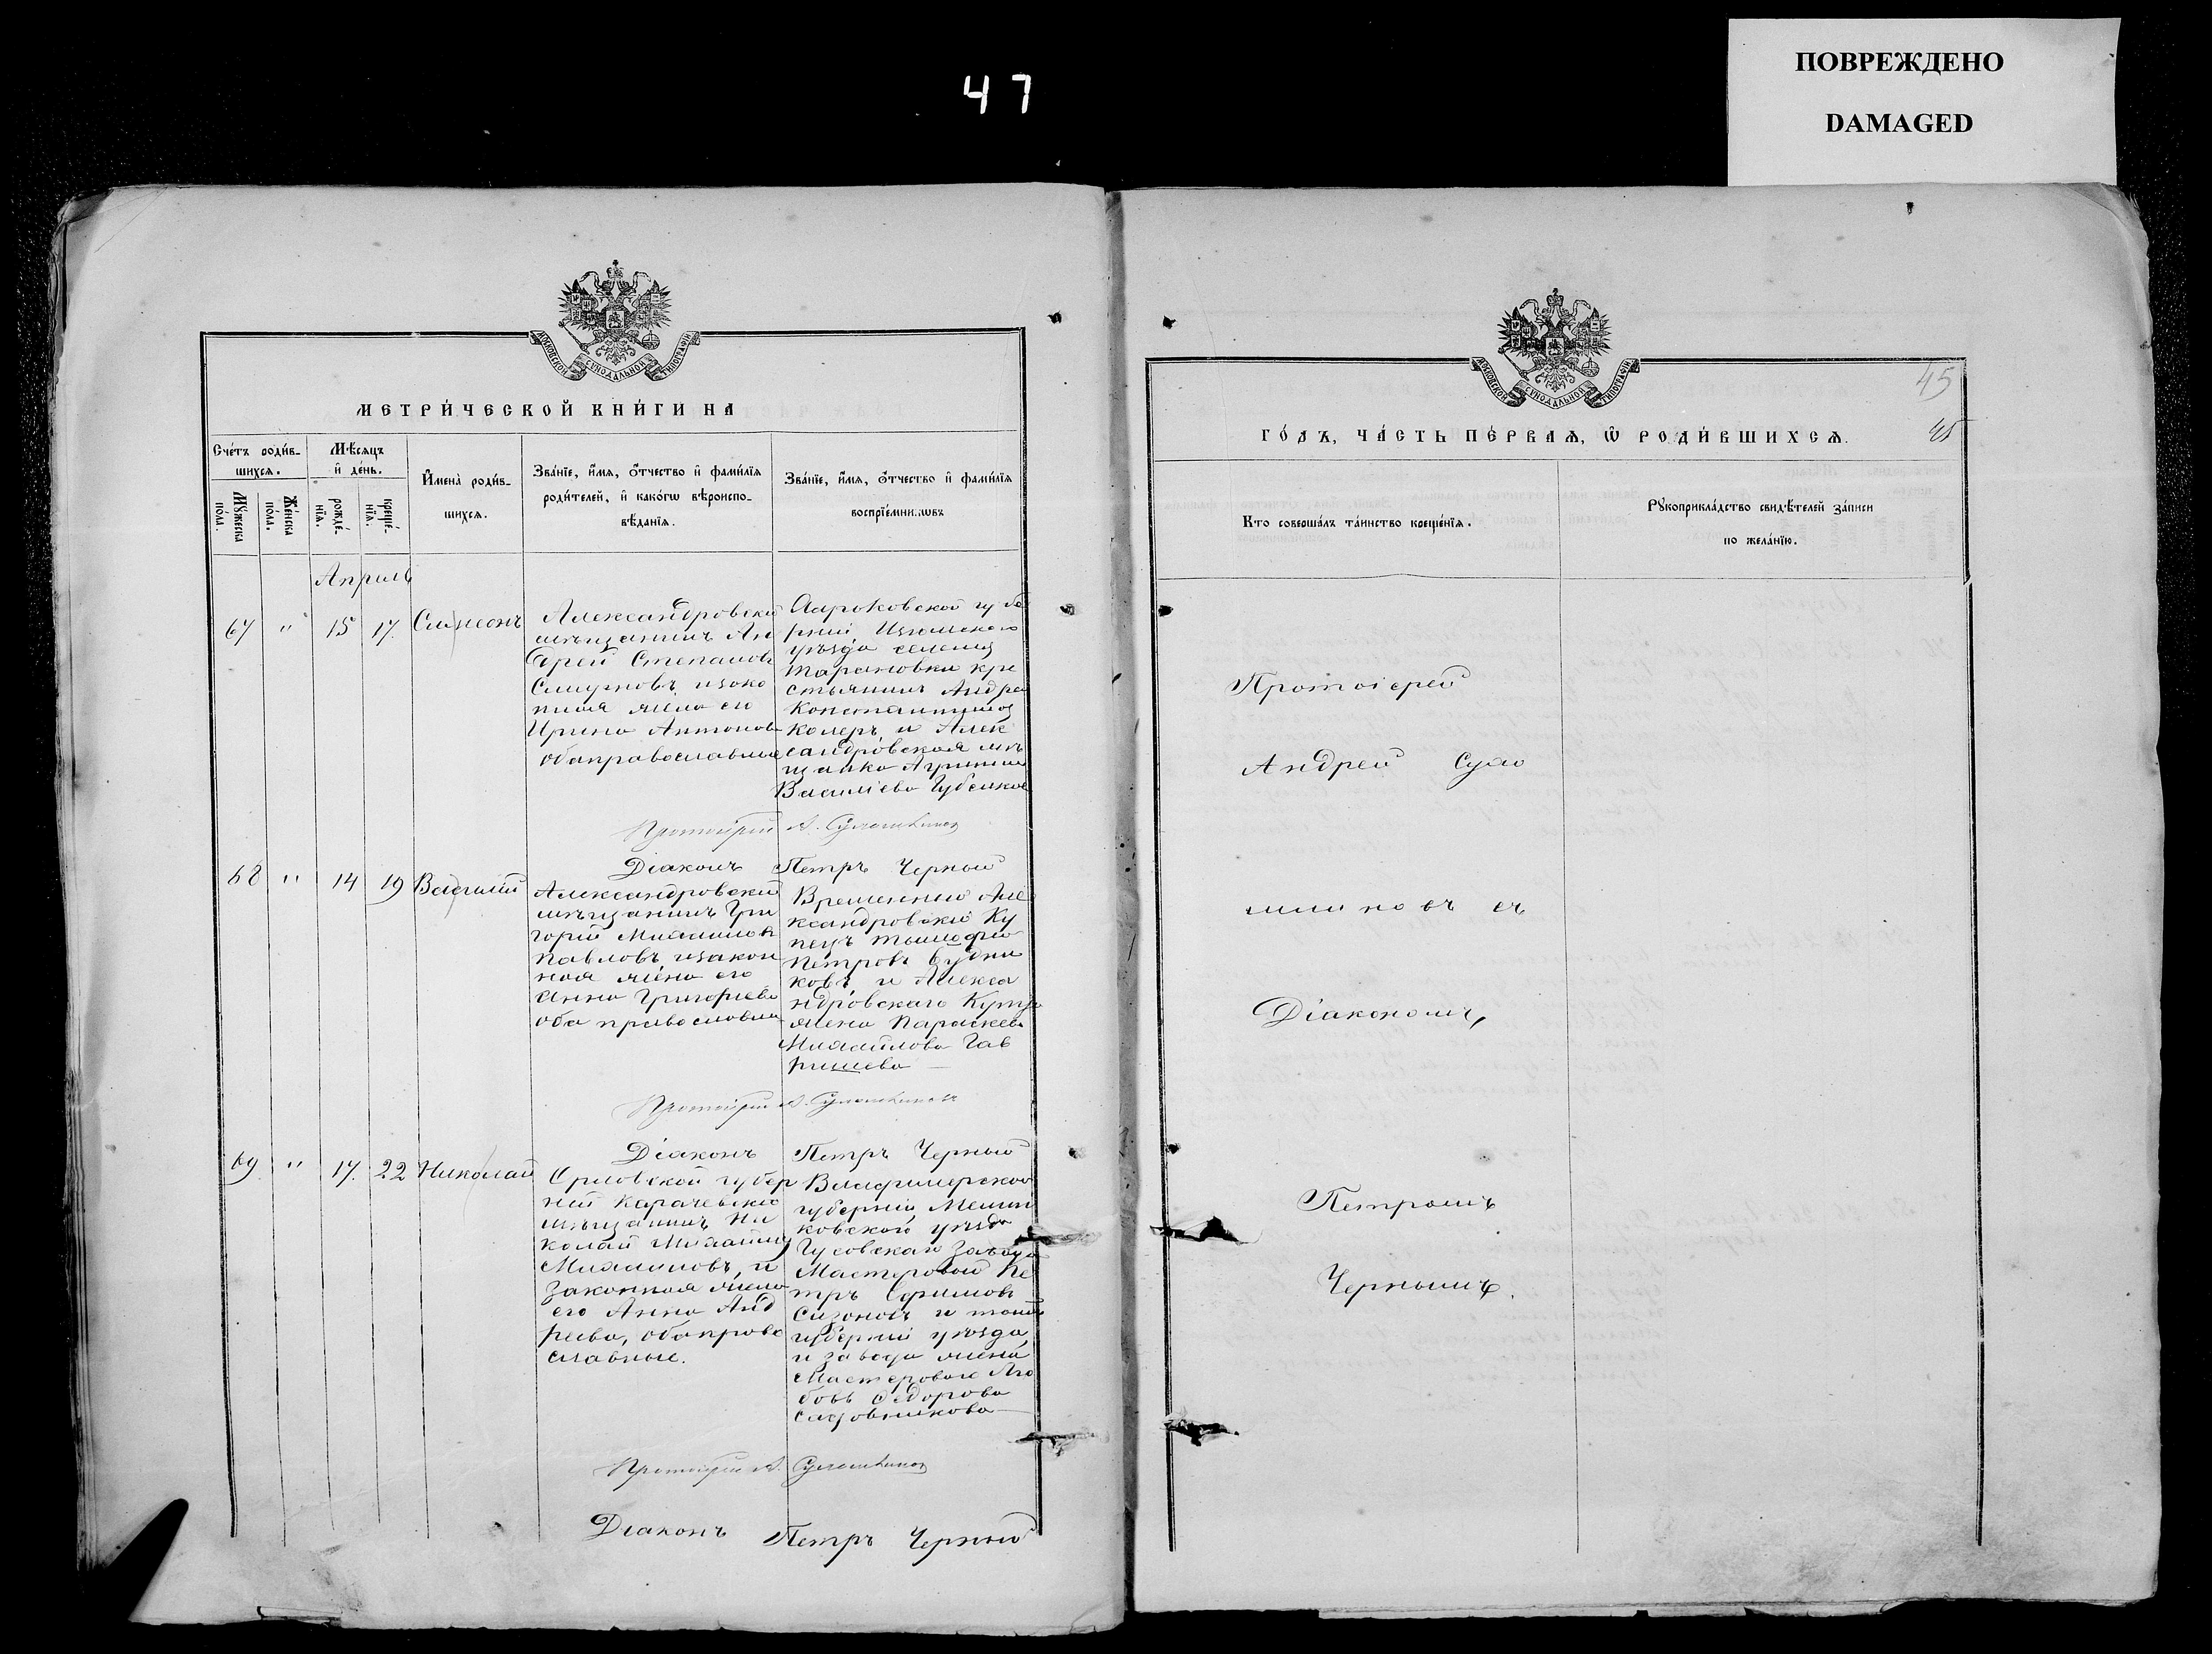 47
ПОВРЕЖДЕНО
DAMAGED
МОСКОВСКОЙ СѴНОДАЛЬНОЙ ТИПОГРАФІИ
МЕТРИ́ЧЕСКОЙ КНИ́ГИ НА
Сче́тъ роди́в-
шихсѧ.
Мѣ́сяцъ
и҆ де́нь.
Мꙋ́жеска
по́ла.
Же́нска
по́ла.
рожде́-
нїѧ.
креще́-
нїѧ.
И҆мена̀ роди́в-
шихсѧ.
Зва́нїе, и҆́мѧ, ѻ҆́тчество и҆ фами́лїѧ
роди́телей, и҆ како́гѡ вѣроиспо-
вѣ́данїѧ.
Зва́нїе, и҆́мѧ, ѻ҆́тчество и҆ фами́лїѧ
воспрїе́мниковъ
Апрель
67 " 15 17. Симеонъ
Александровскій
мѣщанинъ Ан
дрей Степановъ
Смирновъ, изако
нная жена его
Ирина Антонова
оба православные
Харьковской губе
рніи, Изюмскаго
уѣзда селенія
Тарановки кре
стьянинъ Андрей
Константиновъ
и Алек
сандровская мѣ
щанка
Василіева
Протоіерей А.
Діаконъ Петръ Черный
68 " 14 19 Василій
Александровскій
мѣщанинъ Гри
горій Михаиловъ
Павловъ, изакон
ная жена его
Анна Григорьева
оба православны
Временный Але
ксандровскій Ку
пецъ Тимофей
Петровъ Будни
ковъ, и Алекса
ндровскаго Купца
жена Параскева
Михаилова Гав
ришева
Протоіерей А.
Діаконъ Петръ Черный
69 " 17. 22 Николай
Орловской губер
ніи Карачевскій
мѣщанинъ Ни
колай Михаиловъ
Михаиловъ, и
законная жена
его Анна Анд
реева, оба право
славные.
Владимирской
губерніи, Мелен
ковской уѣзда
Гусовскаго завода
Мастеровой Пе
тръ Ефимовъ
Сизоновъ и тойже
губерніи уѣзда
и завода жена
Мастероваго Лю
бовь Федорова
Садовникова
Протоіерей А.
Діаконъ Петръ Черный
МОСКОВСКОЙ СѴНОДАЛЬНОЙ ТИПОГРАФІИ
45
45
ГО́ДЪ, ЧА́СТЬ ПЕ́РВАѦ, Ѡ҆ РОДИ́ВШИХСѦ.
Кто̀ соверша́лъ та́инство креще́нїѧ.
Рꙋкоприкла́дство свидѣ́телей за́писи
по жела́нїю.
Протоіерей
Андрей
съ
Діакономъ,
Петромъ
Чернымъ.